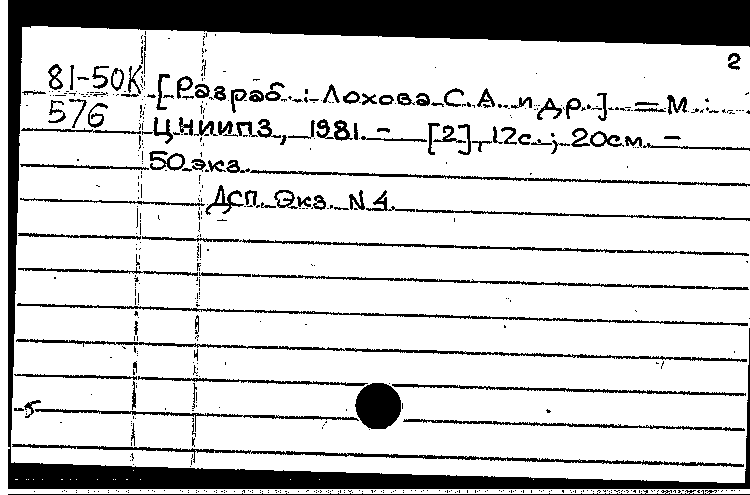 2
81-50К [Разраб.: Лохова С.А. и др.] — М.:
576 ЦНИИПЗ, 1981. - [2], 12с.; 20см. -
50 экз.
ДСП. Экз. N 4.
5